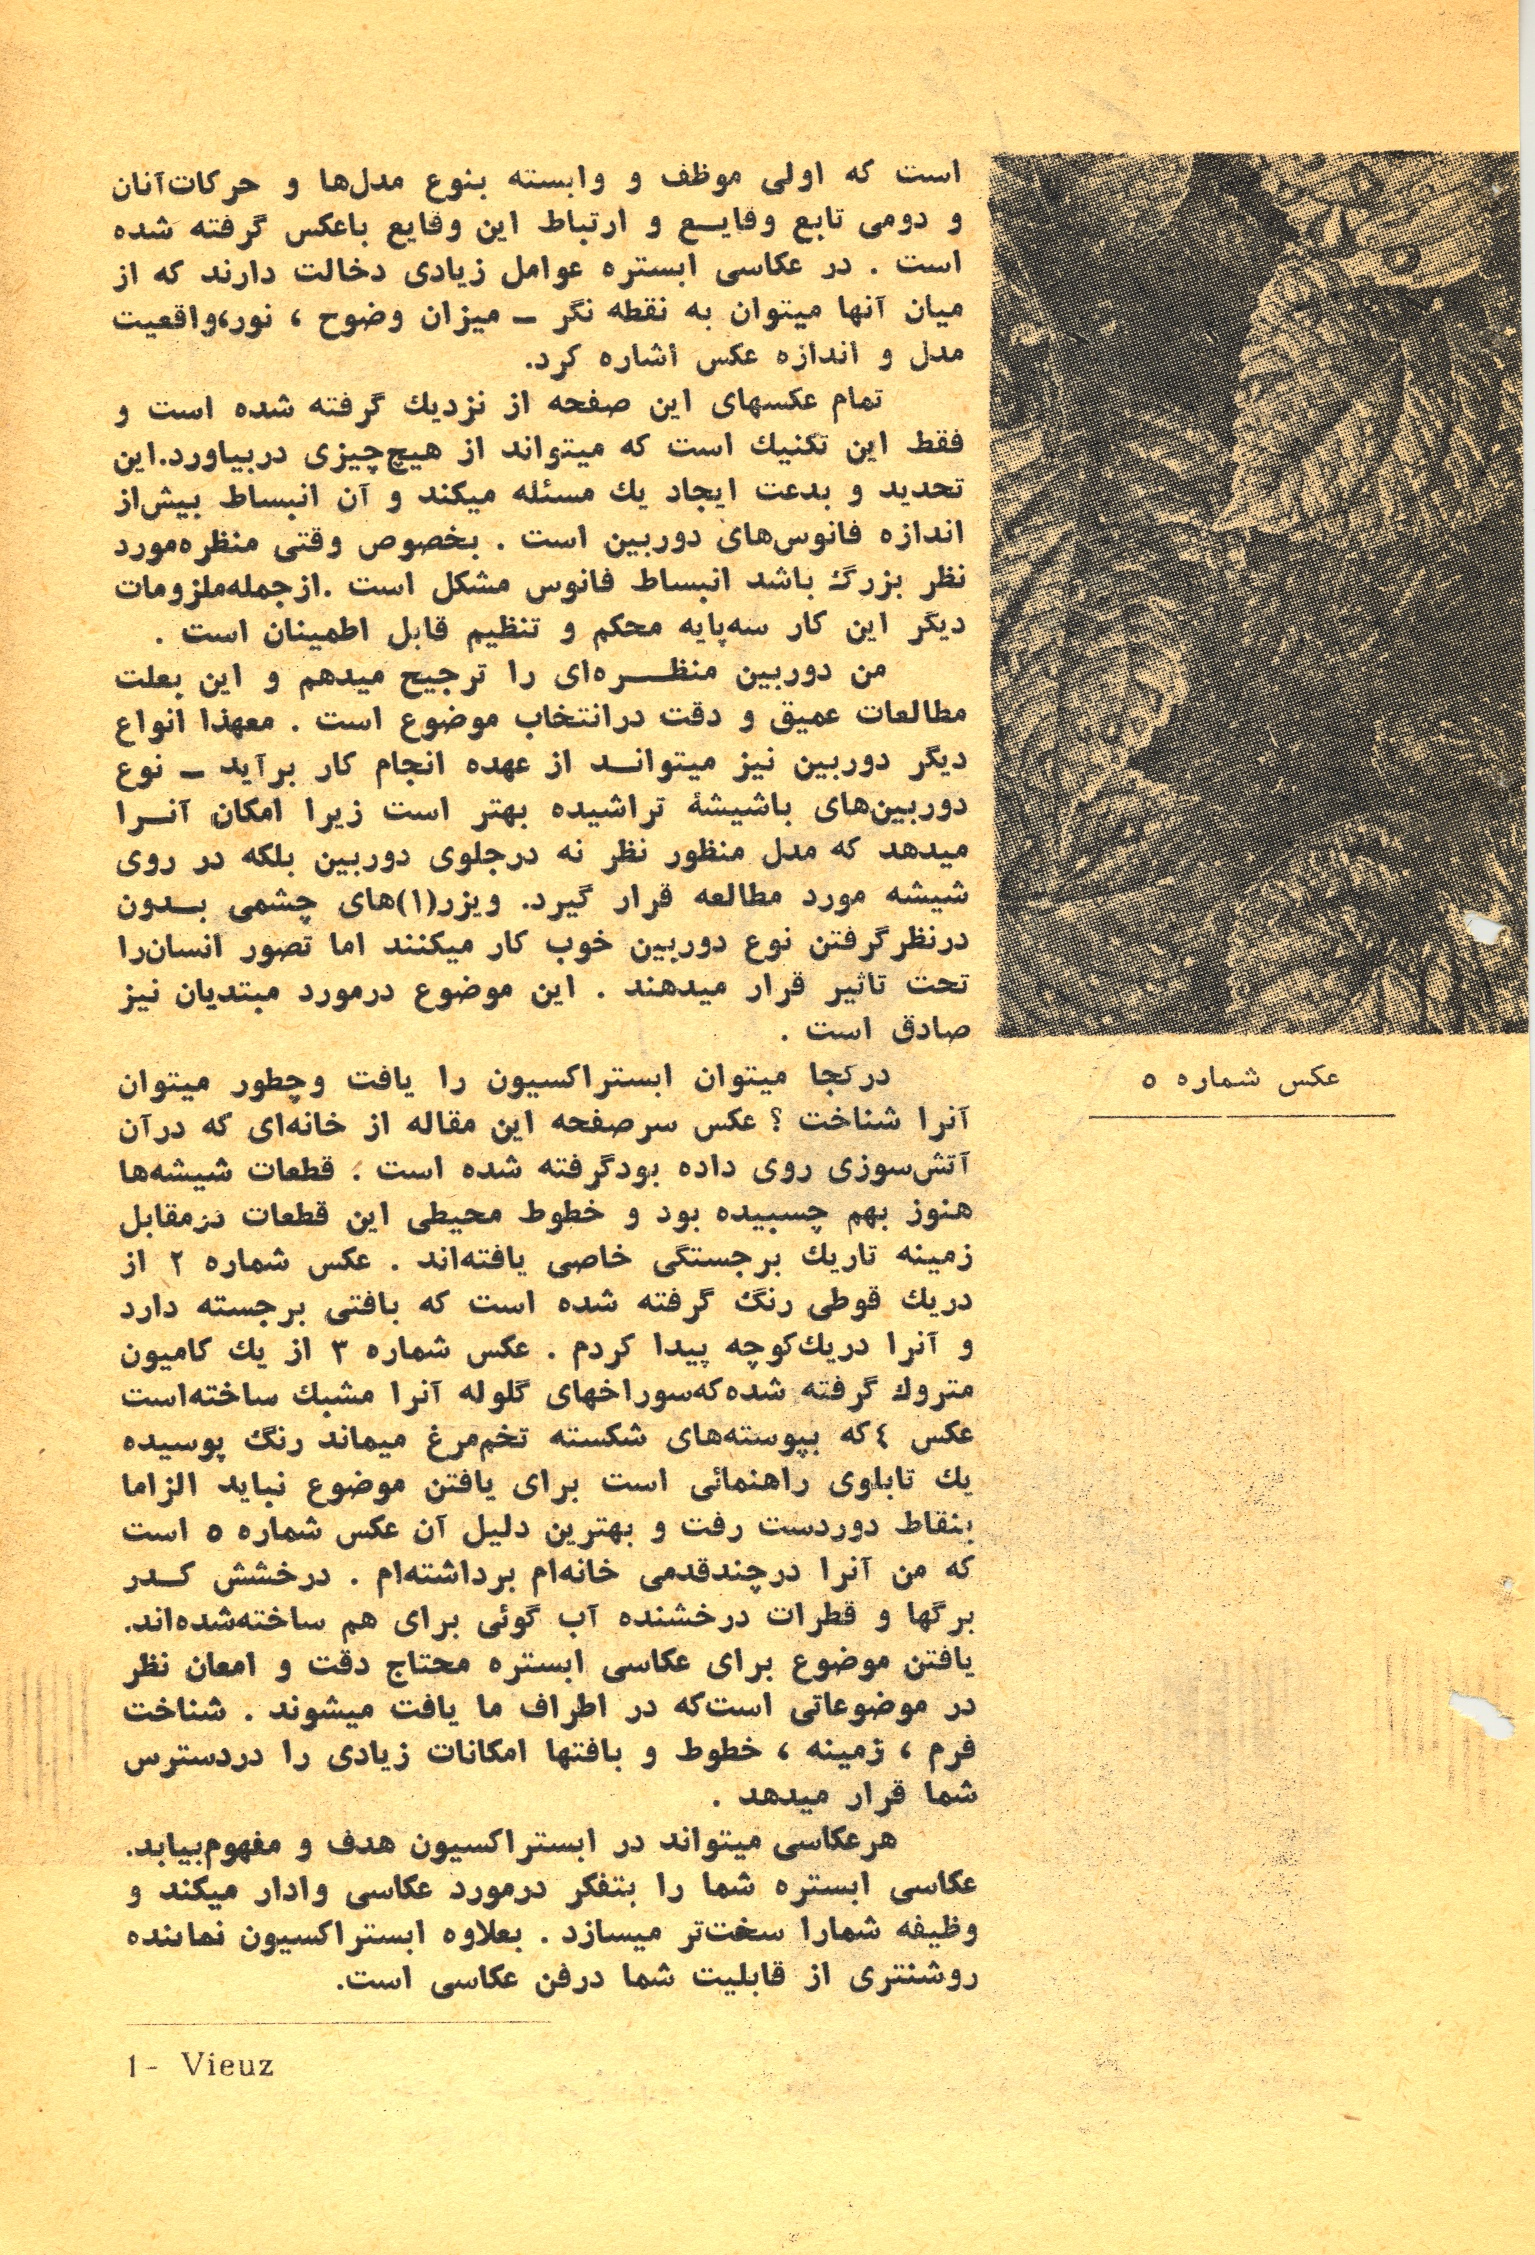 است که اولی موظف و وابسته بنوع مدل‌ها و حرکات‌آنان
و دومی تابع وقایع و ارتباط این وقایع باعکس گرفته شده
است . در عکاسی ابستره عوامل زیادی دخالت دارند که از
میان آنها میتوان به نقطه نگر ـ میزان وضوح ، نور،واقعیت
مدل و اندازه عکس اشاره کرد.
تمام عکسهای این صفحه از نزدیك گرفته شده است و
فقط این تکنیك است که میتواند از هیچ‌چیزی دربیاورد.این
تحدید و بدعت ایجاد یك مسئله میکند و آن انبساط بیش‌از
اندازه فانوس‌های دوربین است . بخصوص وقتی منظره‌مورد
نظر بزرگ باشد انبساط فانوس مشکل است .ازجمله‌ملزومات
دیگر این کار سه‌پایه محکم و تنظیم قابل اطمینان است .
من دوربین منظره‌ای را ترجیح میدهم و این بعلت
مطالعات عمیق و دقت درانتخاب موضوع است . معهذا انواع
دیگر دوربین نیز میتواند از عهده انجام کار برآید ـ نوع
دوربین‌های باشیشهٔ تراشیده بهتر است زیرا امکان آنرا
میدهد که مدل منظور نظر نه درجلوی دوربین بلکه در روی
شیشه مورد مطالعه قرار گیرد. ویزر(۱)های چشمی بدون
درنظرگرفتن نوع دوربین خوب کار میکنند اما تصور انسان‌را
تحت تاثیر قرار میدهند . این موضوع درمورد مبتدیان نیز
صادق است .
درکجا میتوان ابستراکسیون را یافت وچطور میتوان
آنرا شناخت ؟ عکس سرصفحه این مقاله از خانه‌ای که درآن
آتش‌سوزی روی داده بودگرفته شده است . قطعات شیشه‌ها
هنوز بهم چسبیده بود و خطوط محیطی این قطعات درمقابل
زمینه تاریك برجستگی خاصی یافته‌اند . عکس شماره ۲ از
دریك قوطی رنگ گرفته شده است که بافتی برجسته دارد
و آنرا دریك‌کوچه پیدا کردم . عکس شماره ۳ از یك کامیون
متروك گرفته شده‌که‌سوراخهای گلوله آنرا مشبك ساخته‌است
عکس ٤که بپوسته‌های شکسته تخم‌مرغ میماند رنگ پوسیده
یك تابلوی راهنمائی است برای یافتن موضوع نباید الزاما
بنقاط دوردست رفت و بهترین دلیل آن عکس شماره ٥ است
که من آنرا درچندقدمی خانه‌ام برداشته‌ام . درخشش کدر
برگها و قطرات درخشنده آب گوئی برای هم ساخته‌شده‌اند.
یافتن موضوع برای عکاسی ابستره محتاج دقت و امعان نظر
در موضوعاتی است‌که در اطراف ما یافت میشوند . شناخت
فرم ، زمینه ، خطوط و بافتها امکانات زیادی را دردسترس
شما قرار میدهد .
هرعکاسی میتواند در ابستراکسیون هدف و مفهوم‌بیابد.
عکاسی ابستره شما را بتفکر درمورد عکاسی وادار میکند و
وظیفه شمارا سخت‌تر میسازد . بعلاوه ابستراکسیون نماینده
روشنتری از قابلیت شما درفن عکاسی است.
1- Vieuz
عکس شماره ٥